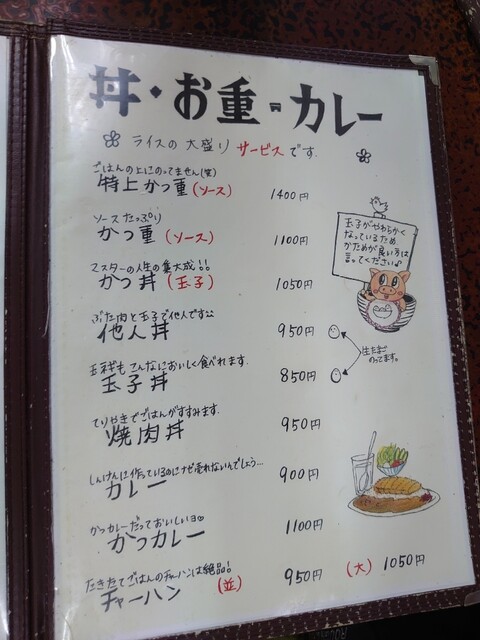 丼・お重・カレー
ライスの大盛りサービスです.
ごはんの上にのってません(笑)
特上かつ重(ソース) 1400円
ソースたっぷり
かつ重(ソース) 1100円
マスターの人生の集大成!!
かつ丼(玉子) 1050円
玉子がやわらかく
なっているため
かためが良い方は
言ってください♪
ぶた肉と玉子で他人です
他人丼 950円
生たまご
のってます。
玉ネギもこんなにおいしく食べれます.
玉子丼 850円
てりやきでごはんがすすみます.
焼肉丼 950円
しんけんに作っているのにナゼ売れないんでしょう…
カレー 900円
かつカレーだっておいしいヨ
かつカレー 1100円
たきたてごはんのチャーハンは絶品!
チャーハン (並) 950円 (大) 1050円